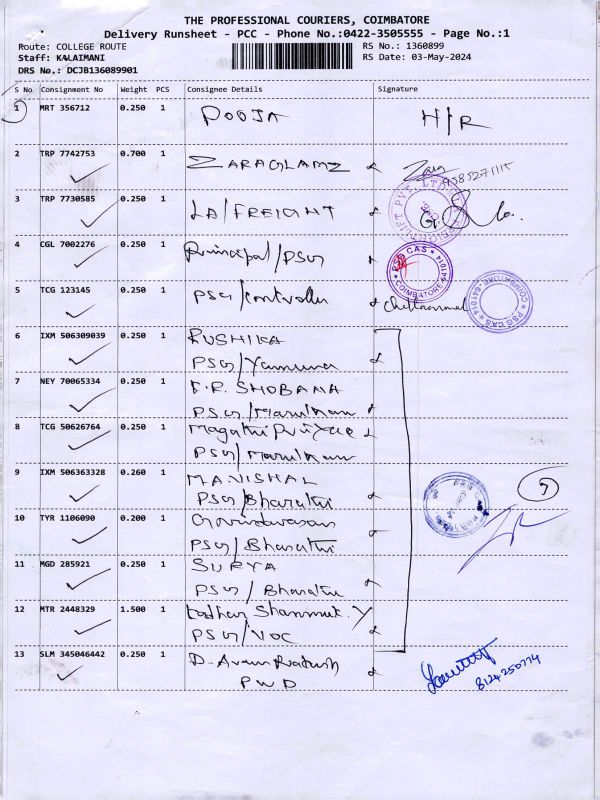 THE PROFESSIONAL COURIERS, COIMBATORE
Delivery Runsheet - PCC - Phone No.:0422-3505555 - Page No.:1
Route: COLLEGE ROUTE
RS No.: 1360899
Staff: KALAIMANI
RS Date: 03-May-2024
DRS No.: DCJB136089901
S No Consignment No Weight PCS Consignee Details Signature
1 MRT 356712 0.250 1 POOJA H/R
2 TRP 7742753 0.700 1 ZARAGLAMZ
9585271115
3 TRP 7730585 0.250 1 LA/FREIGHT
4 CGL 7002276 0.250 1 Principal/PSG
PSG CAS
COIMBATORE-641014
5 TCG 123145 0.250 1 PSG/Controller
PSG CAS
COIMBATORE-641014
6 IXM 506309039 0.250 1 RUSHIKA
PSG/Yamuna
7 NEY 70065334 0.250 1 F.R. SHOBANA
PSG/
8 TCG 50626764 0.250 1
PSG/
9 IXM 506363328 0.260 1 MAVISHAL
PSG/Bharathi
5
10 TYR 1106090 0.200 1 Govindvasan
PSG/Bharathi
11 MGD 285921 0.250 1 SURYA
PSG/Bharathi
12 MTR 2448329 1.500 1 Shanmuk. Y
PSG/VOC
13 SLM 345046442 0.250 1 D. Arun Prakash
PWD
8124250774